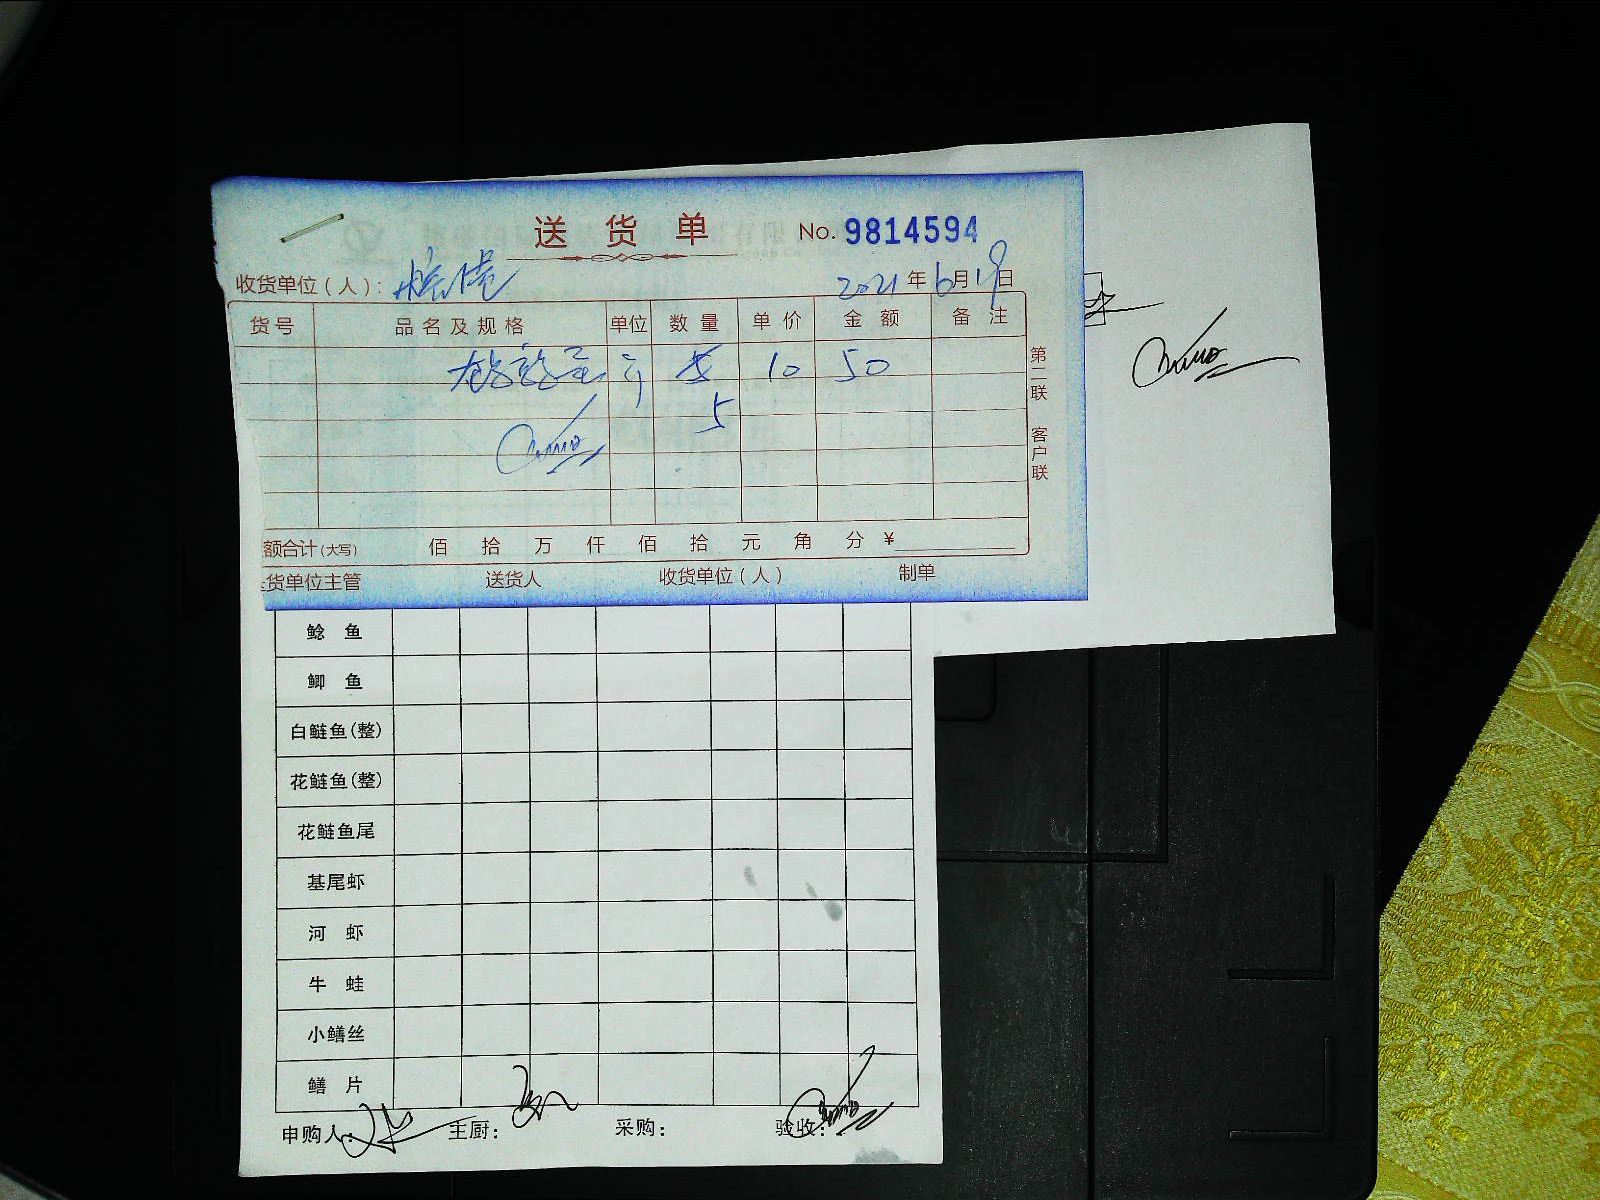 送货单 No. 9814594
收货单位（人）：
2021年6月19日
货号 品名及规格 单位 数量 单价 金额 备注
10 50
5
第二联 客户联
额合计(大写) 佰 拾 万 仟 佰 拾 元 角 分 ¥
货单位主管 送货人 收货单位（人） 制单
鲶鱼
鲫鱼
白鲢鱼(整)
花鲢鱼(整)
花鲢鱼尾
基尾虾
河虾
牛蛙
小鳝丝
鳝片
申购人： 主厨： 采购： 验收：